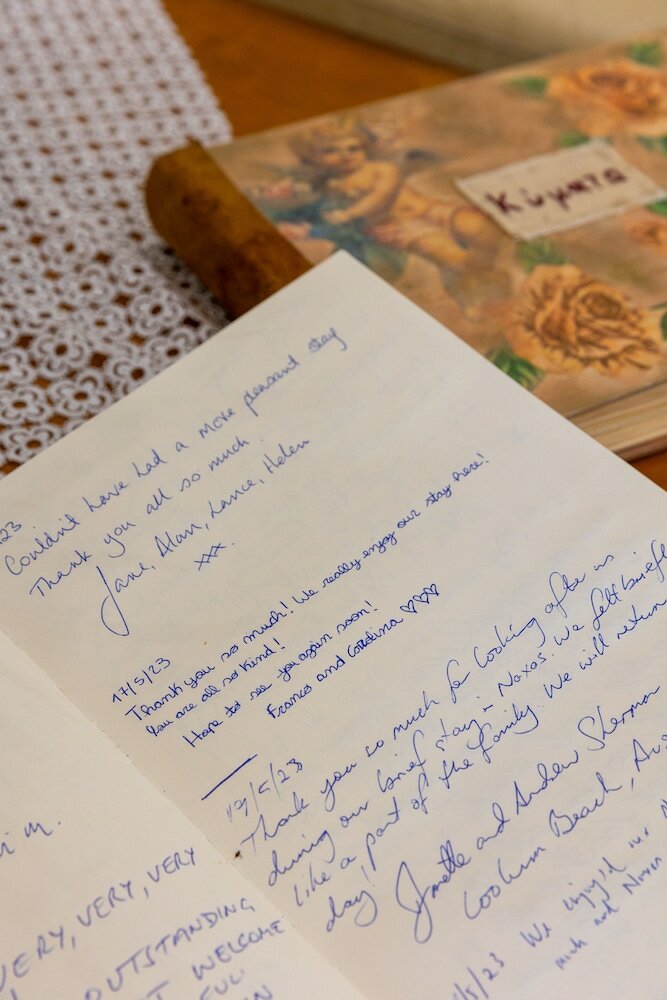 Κύματα
23
Couldn't have had a more pleasant stay
Thank you all so much.
Jane, Alan, Lance, Helen
xxx.
17/5/23
Thank you so much! We really enjoy our stay here!
You are all so kind!
Hope to see you again soon!
Franco and
19/5/23
Thank you so much for looking after us
during our brief stay in Naxos. We felt
like a part of the family. We will return
day!
and Andrew Sherman
Coolum Beach,
/5/23 We enjoy'd our
much and Naxos
VERY, VERY, VERY
OUTSTANDING
WELCOME